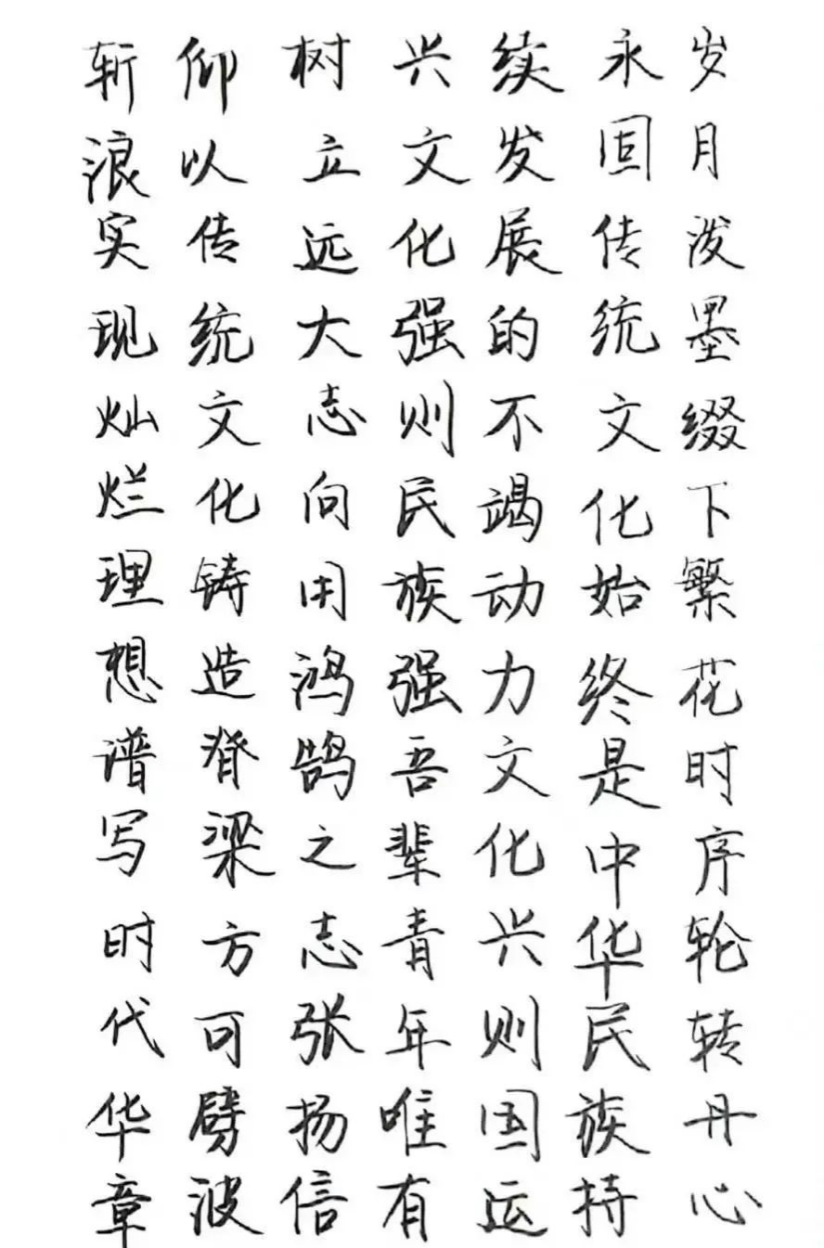 岁月泼墨缀下繁花时序轮转丹心
永固传统文化始终是中华民族持
续发展的不竭动力文化兴则国运
兴文化强则民族强吾辈青年唯有
树立远大志向用鸿鹄之志张扬信
仰以传统文化铸造脊梁方可劈波
斩浪实现灿烂理想谱写时代华章